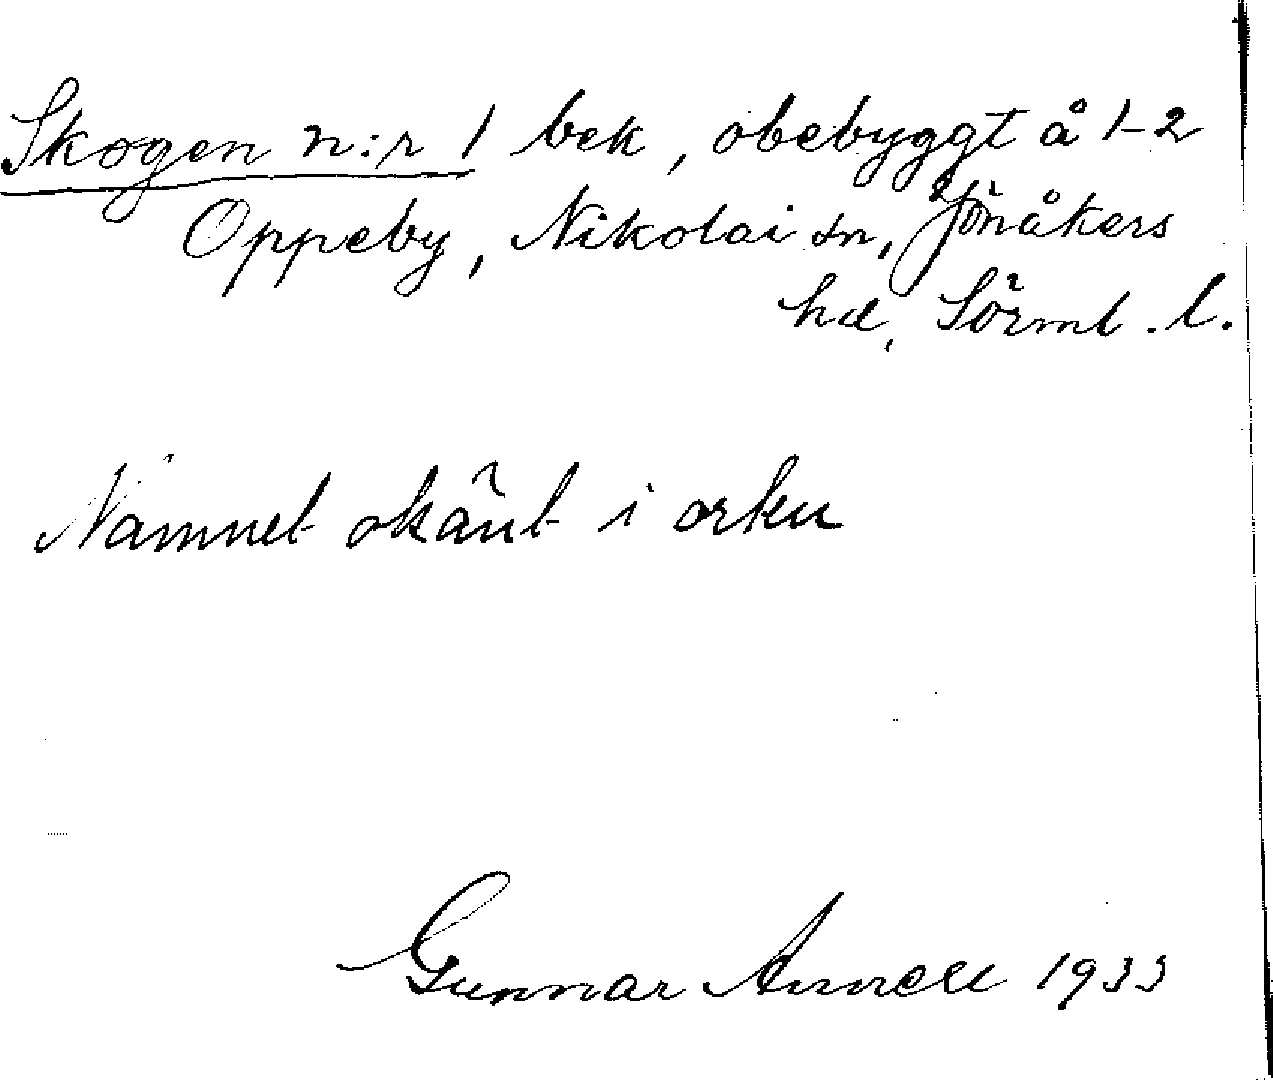 Skogen n:r 1 bek, obebyggt å 1-2
Oppeby, Nikolai sn, Jönåkers
hd, Sörml. l.
Namnet okänt i orten
Gunnar Annell 1933